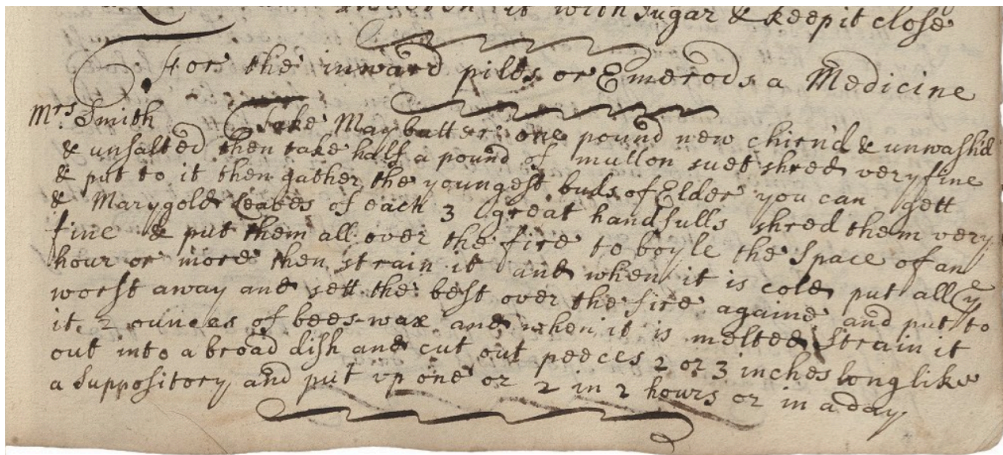 it with sugar & keep it close
For the inward piles or Emerods a Medicine
Mrs. Smith Take May butter one pound new chirn'd & unwash'd
& unsalted then take half a pound of mutton suet shred very fine
& put to it then gather the youngest buds of Elder you can gett
& Marygold Leaves of each 3 great handfulls shred them very
fine & put them all over the fire to boyle the Space of an
hour or more then strain it and when it is cold put all ye
worst away and sett the best over the fire againe and put to
it 2 ounces of bees-wax and when it is melted Strain it
out into a broad dish and cut out peeces 2 or 3 inches long like
a Suppository and put up one or 2 in 2 hours or in a day